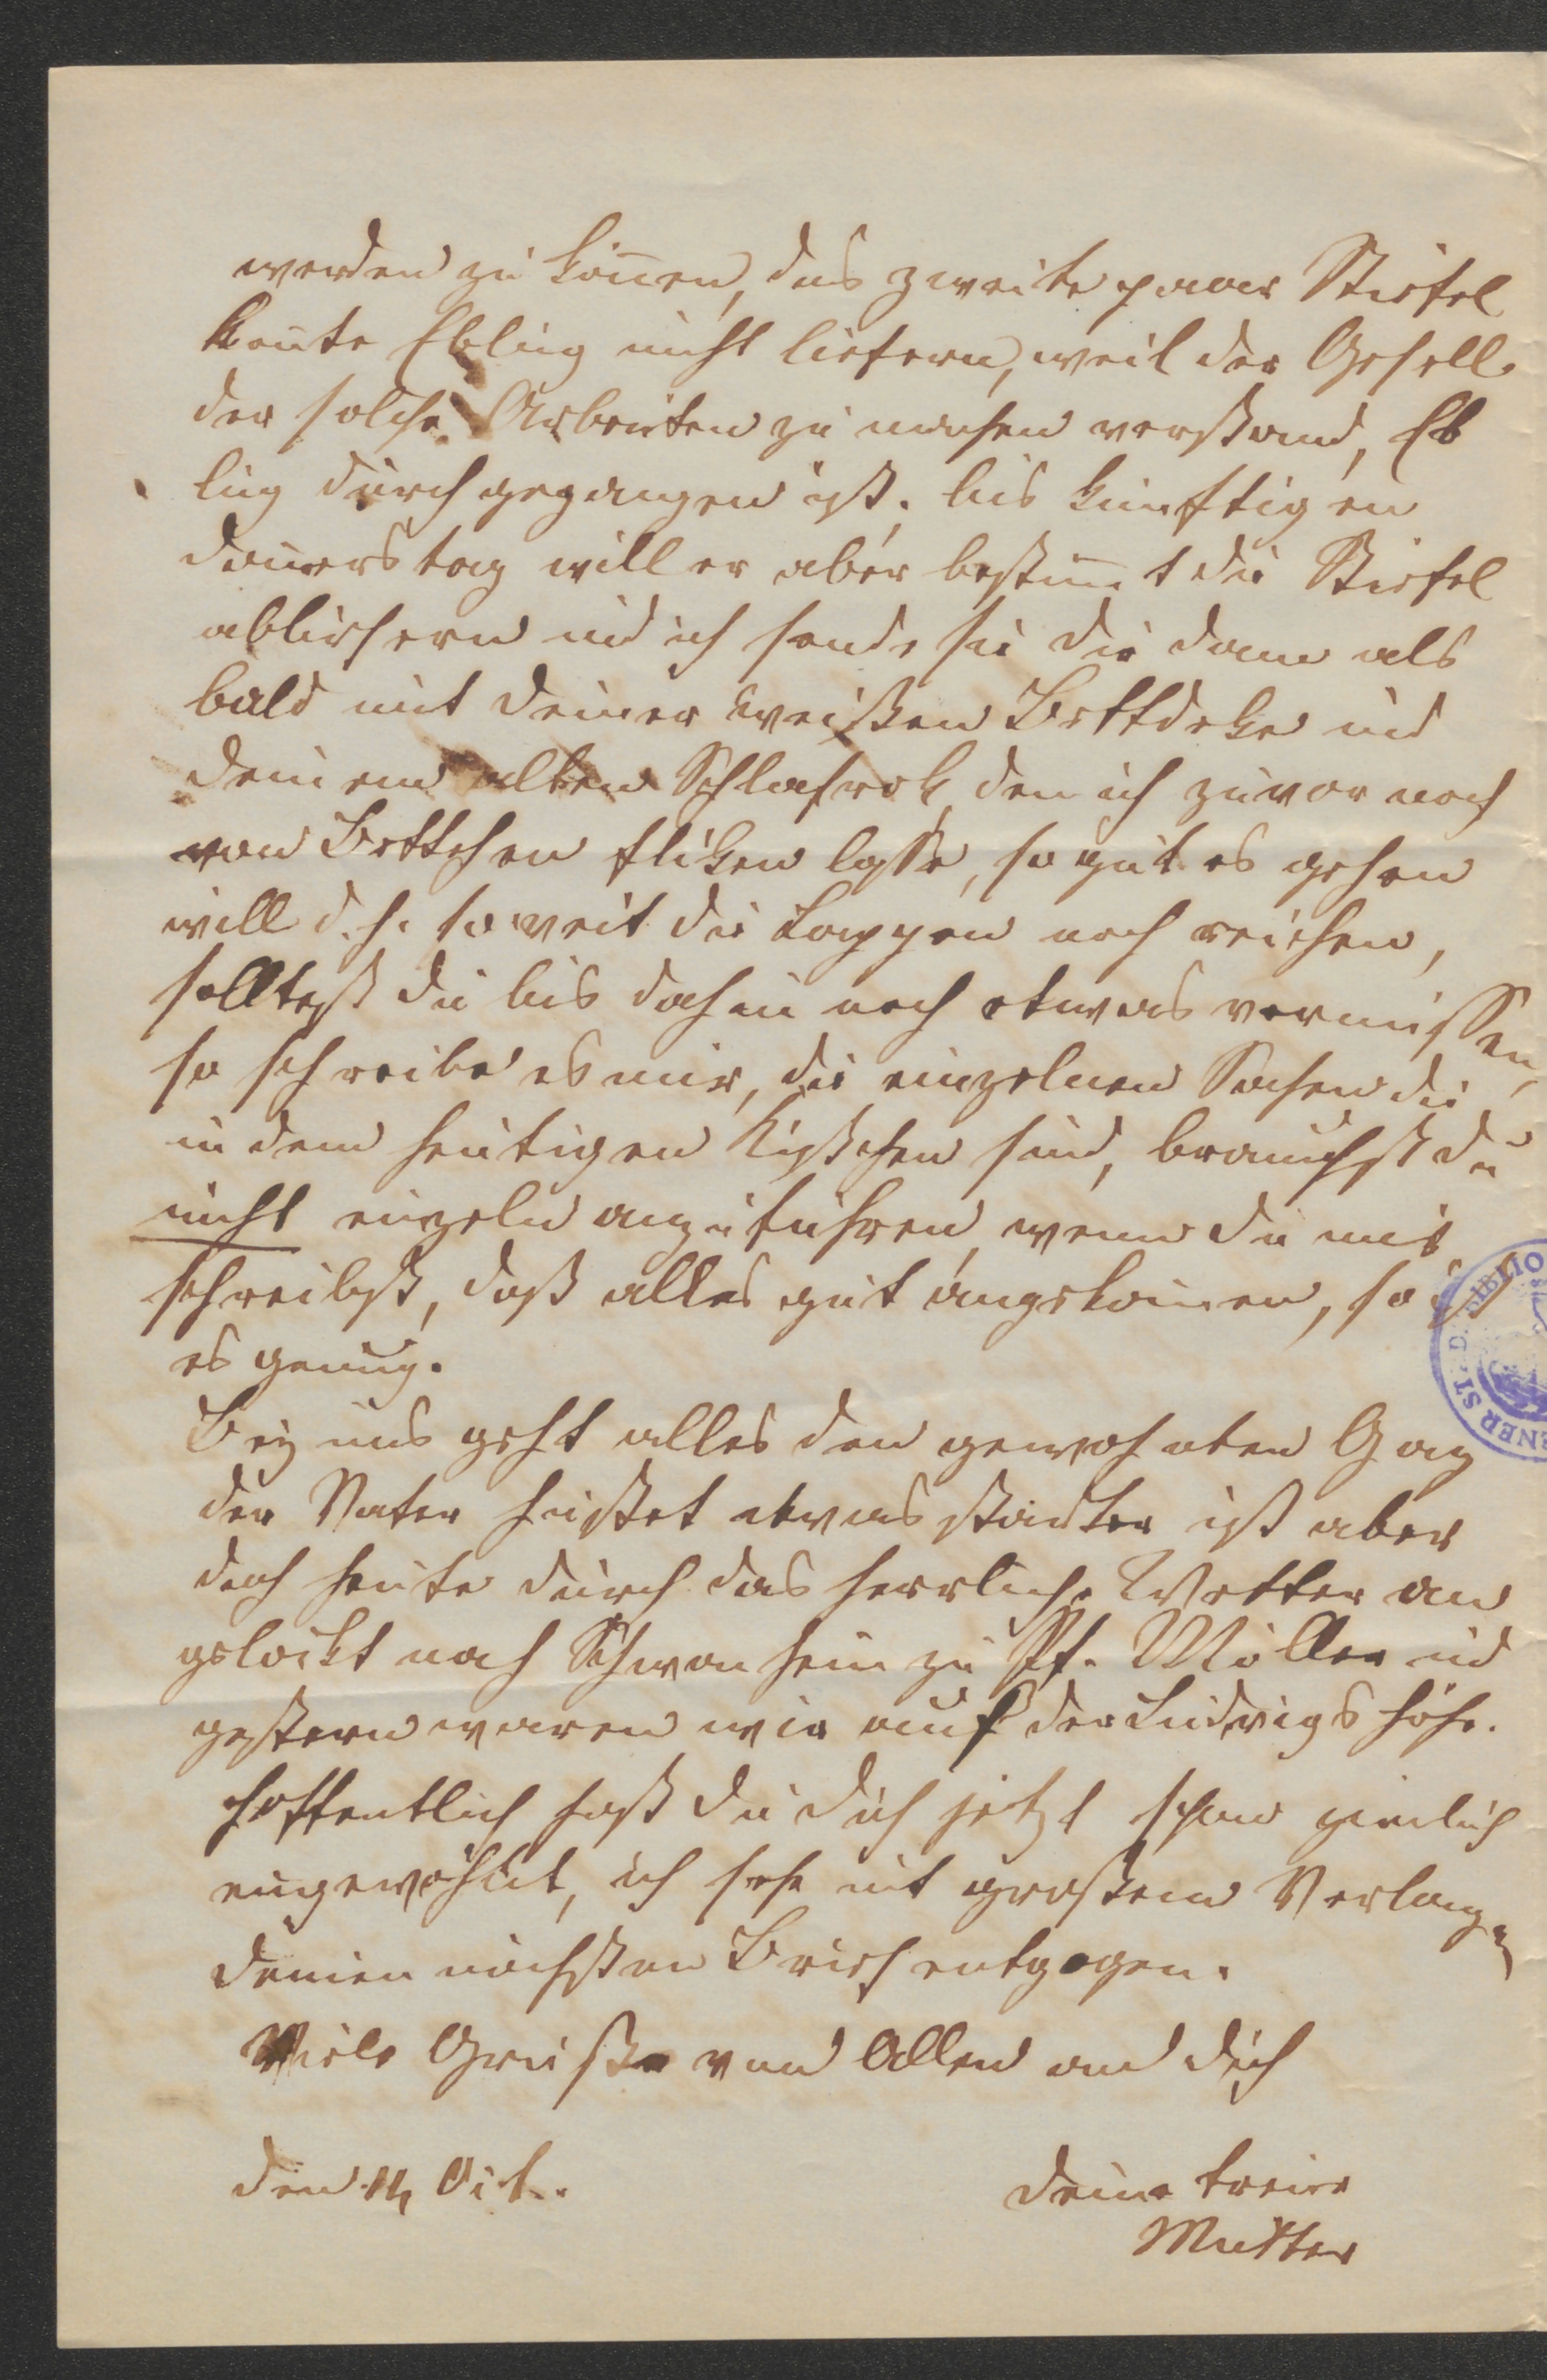 werden zu könen, das zweite paar Stiefel
konte Ebling nicht liefern, weil der Gesell
der solche Arbeiten zu machen verstand, Eb
ling durchgegangen ist. bis künftigen
donerstag will er aber bestimt die Stiefel
abliefern und ich sende sie dir dann als
bald mit deiner weißen Bettdeke und
deinem alten Schlafrok, den ich zuvor noch
von Bettchen fliken lasse, so gut es gehen
will d. h. so weit die Lappen noch reichen,
solltest du bis dahin noch etwas vermissen,
so schreibe es mir, die einzelnen Sachen die
in dem heutigen Kistchen sind, brauchst du
nicht einzeln anzuführen, wenn du mir
schreibst, daß alles gut angekomen, so ist
es genug.
Bey uns geht alles den gewohnten Gang
der Vater hustet etwas stärker ist aber
doch heute durch das herrliche Wetter an
gelockt nach Schwanheim zu Pf. Müller und
gestern waren wir auf der Ludwigshöhe.
hoffentlich hast du dich jetzt schon ziemlich
eingewöhnt, ich sehe mit großem Verlangen
deinem nächsten Brief entgegen.
Viele Grüße von Allen an dich
den 14 Oct.
deine treue
Mutter
BIBLIO
ENER ST. D.